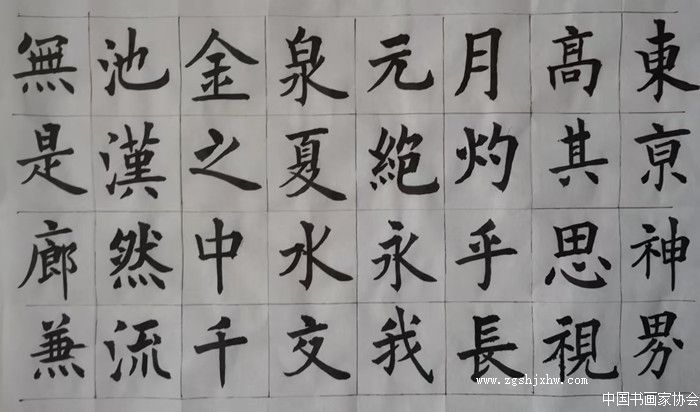 東亰神界
髙其思視
月灼乎長
元絶永我
泉夏水交
金之中千
池漢然流
無是廊兼
www.zgshjxhw.com
中国书画家协会